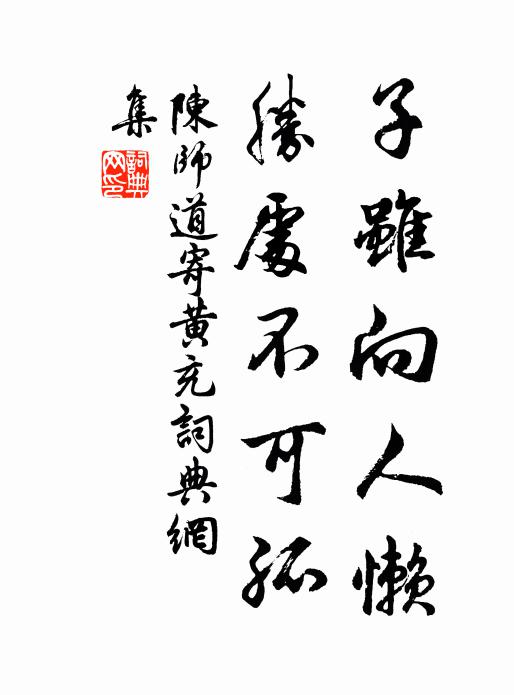 子雖向人懶
勝處不可孤
陳師道寄黃充詞典網
集
詞典
网印